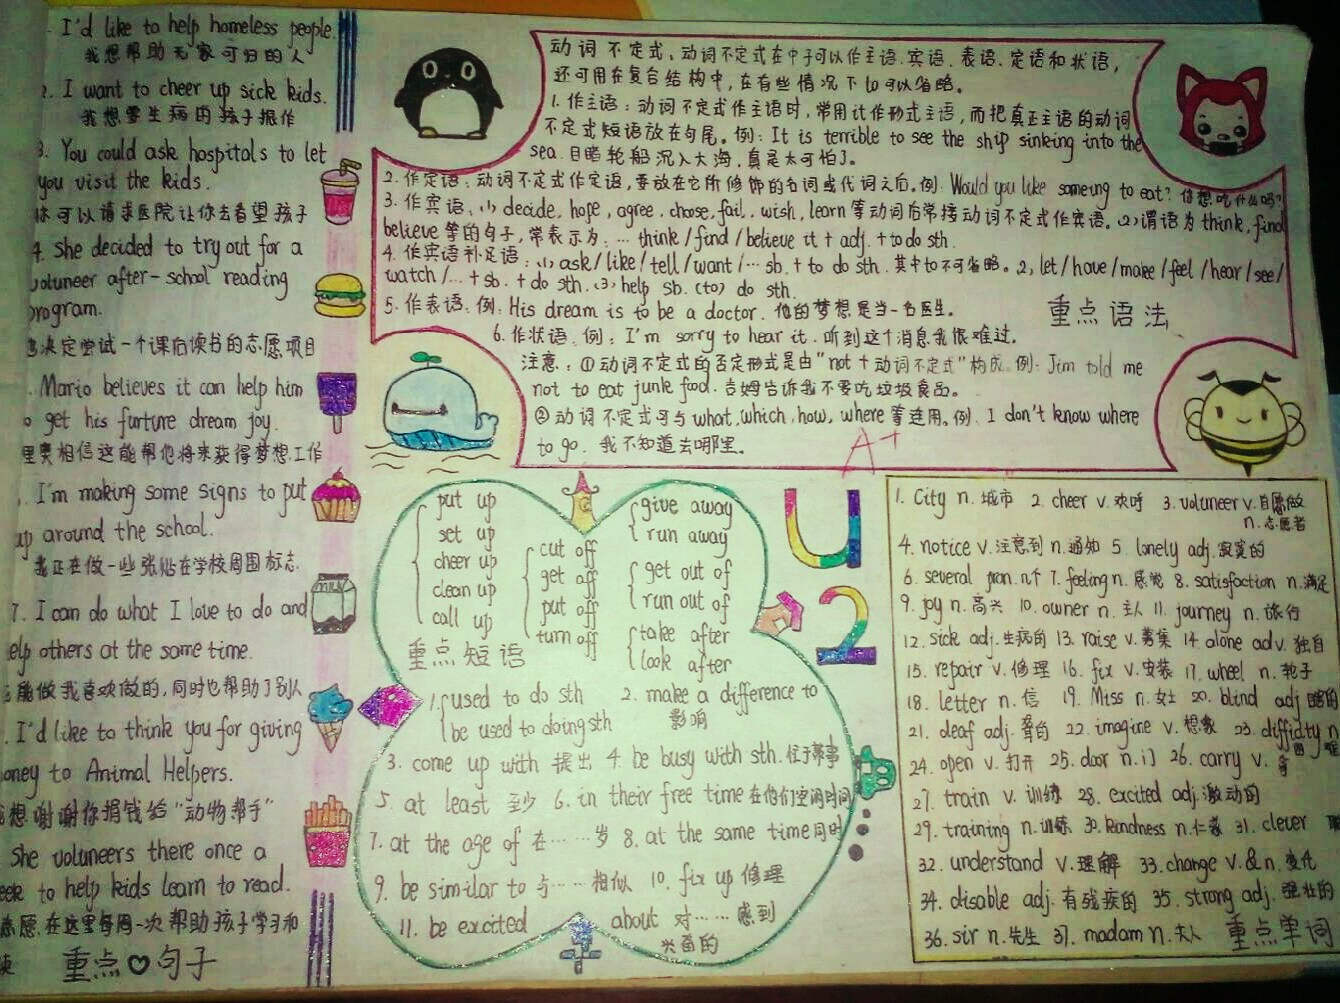 I'd like to help homeless people.
我想帮助无家可归的人
2. I want to cheer up sick kids.
我想要生病的孩子振作
3. You could ask hospitals to let
you visit the kids.
你可以请求医院让你去看望孩子
4. She decided to try out for a
volunteer after-school reading
program.
决定尝试一个课后读书的志愿项目
Mario believes it can help him
get his furture dream joy.
里奥相信这能帮他将来获得梦想工作
I'm making some signs to put
up around the school.
我正在做一些张贴在学校周围标志.
7. I can do what I love to do and
help others at the same time.
能做我喜欢做的,同时也帮助了别人
I'd like to think you for giving
money to Animal Helpers.
想谢谢你捐钱给“动物帮手”
She volunteers there once a
week to help kids learn to read.
志愿在这里每周一次帮助孩子学习和
读
重点句子
动词不定式:动词不定式在中子可以作主语.宾语.表语.定语和状语,
还可用在复合结构中,在有些情况下to可以省略。
1.作主语:动词不定式作主语时,常用it作形式主语,而把真正主语的动词
不定式短语放在句尾。例:It is terrible to see the ship sinking into the
sea.目睹轮船沉入大海,真是太可怕了。
2.作定语:动词不定式作定语,要放在它所修饰的名词或代词之后.例:Would you like someing to eat?你想吃什么吗?
3.作宾语:(1) decide, hope, agree, chose, fail, wish, learn等动词后常接动词不定式作宾语。(2)谓语为think, find
believe等的句子,常表示为:… think/find/believe it + adj. + to do sth.
4.作宾语补足语:(1) ask/like/tell/want/… sb. + to do sth.其中to不可省略。2, let/have/make/feel/hear/see/
watch/… + sb. + do sth. (3) help sb. (to) do sth.
5.作表语:例:His dream is to be a doctor.他的梦想是当一名医生。
重点语法
6.作状语:例:I'm sorry to hear it.听到这个消息我很难过。
注意:①动词不定式的否定形式是由“not+动词不定式”构成.例:Jim told me
not to eat junk food.吉姆告诉我不要吃垃圾食品。
②动词不定式可与what, which, how, where等连用。例.I don't know where
to go.我不知道去哪里。
A+
put up
set up
cheer up
clean up
call up
cut off
get off
put off
turn off
give away
run away
get out of
run out of
take after
look after
重点短语
1. used to do sth
be used to doing sth
2. make a difference to
影响
3. come up with 提出 4. be busy with sth.忙于某事
5. at least 至少 6. in their free time在他们空闲时间
7. at the age of 在……岁 8. at the same time同时
9. be similar to 与……相似 10. fix up 修理
11. be excited about 对……感到
兴奋的
U
2
MILK
1. City n.城市 2. cheer v.欢呼 3. volunteer v.自愿做
n.志愿者
4. notice v.注意到 n.通知 5. lonely adj.寂寞的
6. several pron.几个 7. feeling n.感觉 8. satisfaction n.满足
9. joy n.高兴 10. owner n.主人 11. journey n.旅行
12. sick adj.生病的 13. raise v.募集 14. alone adv.独自
15. repair v.修理 16. fix v.安装 17. wheel n.轮子
18. letter n.信 19. Miss n.女士 20. blind adj
21. deaf adj.聋的 22. imagine v.想象 23. diffidty n
24. open v.打开 25. door n.门 26. carry v.拿
27. train v.训练 28. excited adj.激动的
29. training n.训练 30. kindness n.仁慈 31. clever
32. understand v.理解 33. change v.&n.变化
34. disable adj.有残疾的 35. strong adj.强壮的
36. sir n.先生 37. madam n.夫人
重点单词